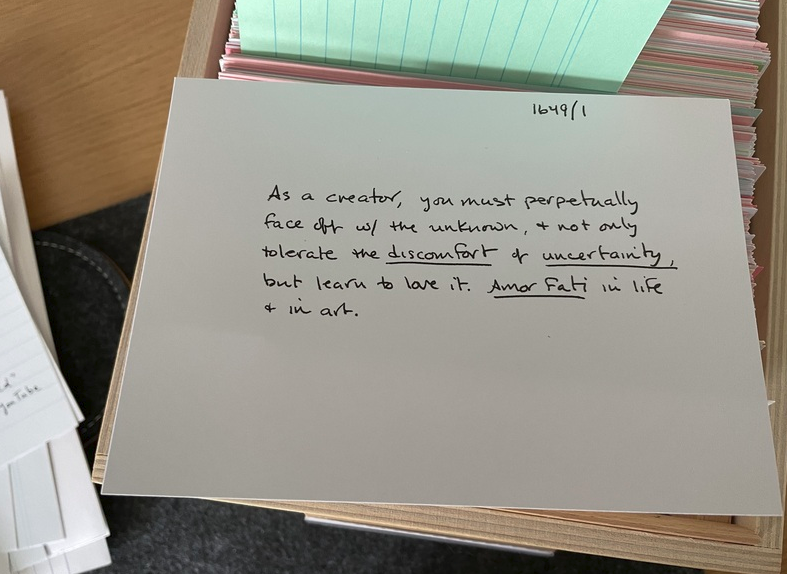 1649/1
As a creator, you must perpetually
face off w/ the unknown, + not only
tolerate the discomfort of uncertainity,
but learn to love it. Amor Fati in life
+ in art.
YouTube